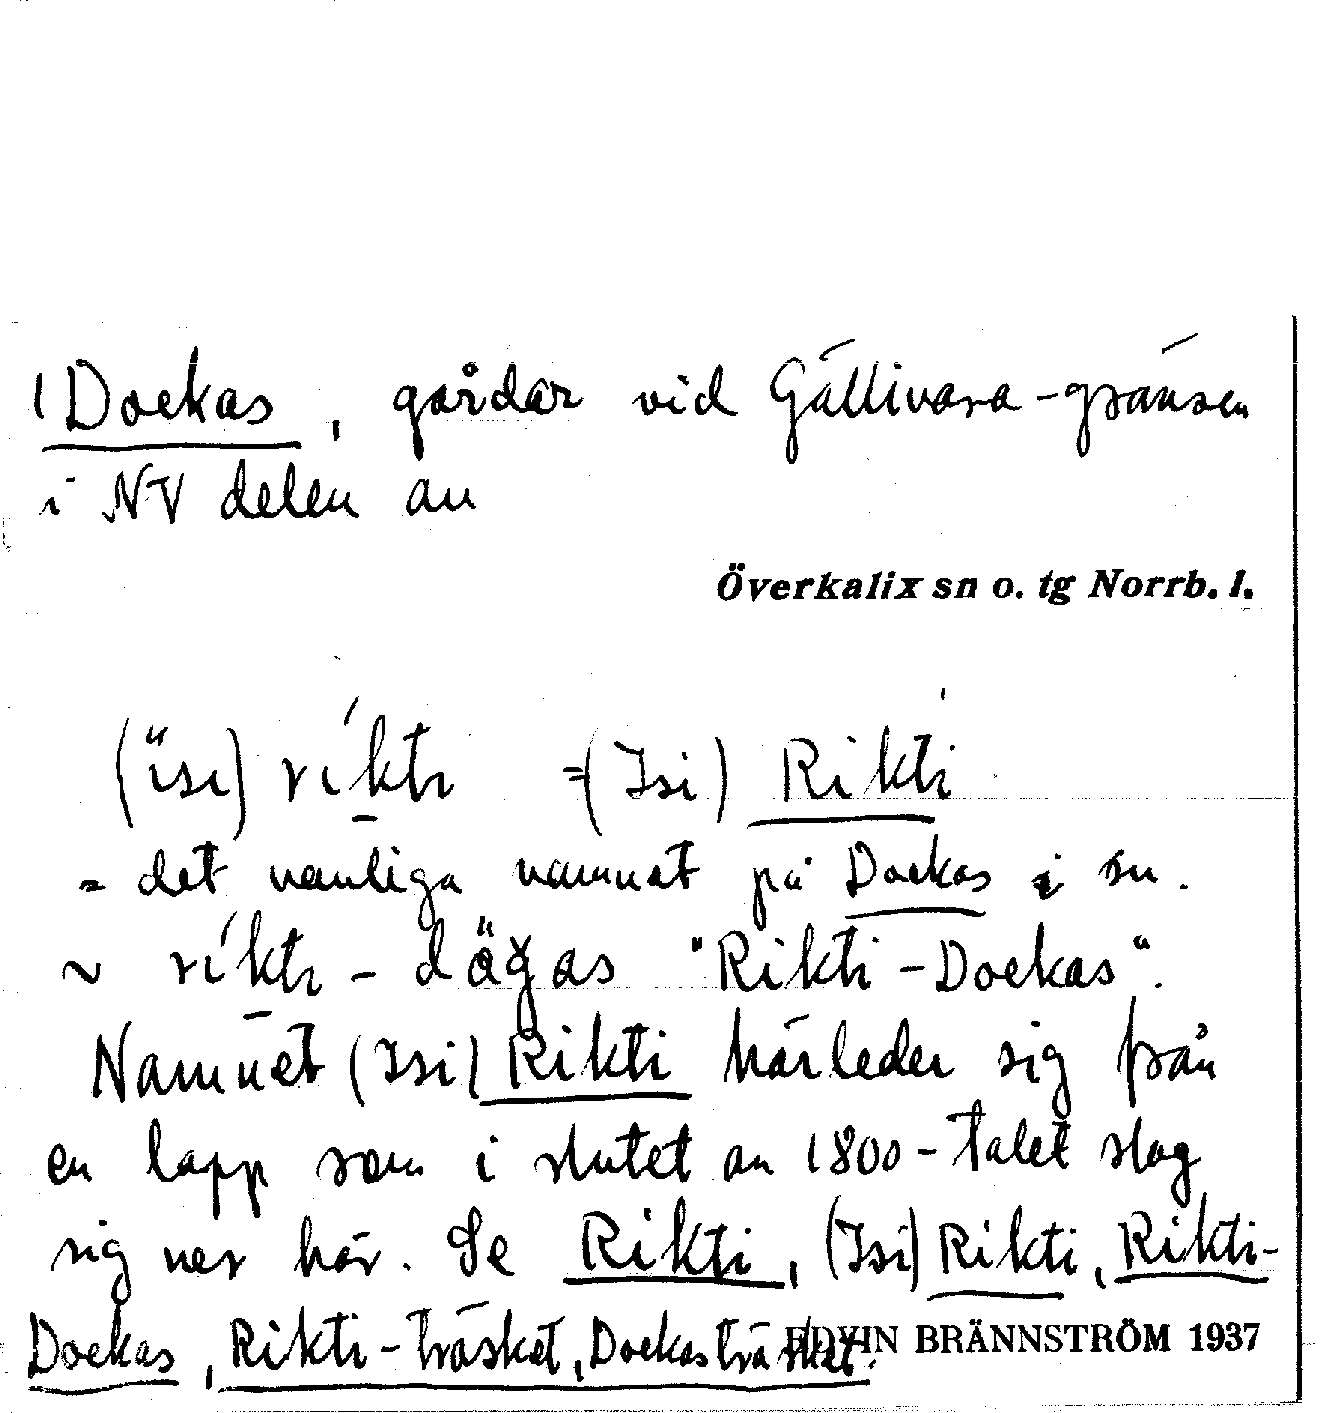 1 Doekas, gårdar vid Gällivara-gränsen
i NV delen av
Överkalix sn o. tg Norrb. l.
(isi) rikti =(Isi) Rikti
= det vanliga namnet på Doekas i sn.
~ rikti - dägas "Rikti-Doekas".
Namnet (Isi) Rikti härleder sig från
en lapp som i slutet av 1800-talet slog
sig ner här. Se Rikti, (Isi) Rikti, Rikti-
Doekas, Rikti-träsket, Doekasträsket.
EDVIN BRÄNNSTRÖM 1937